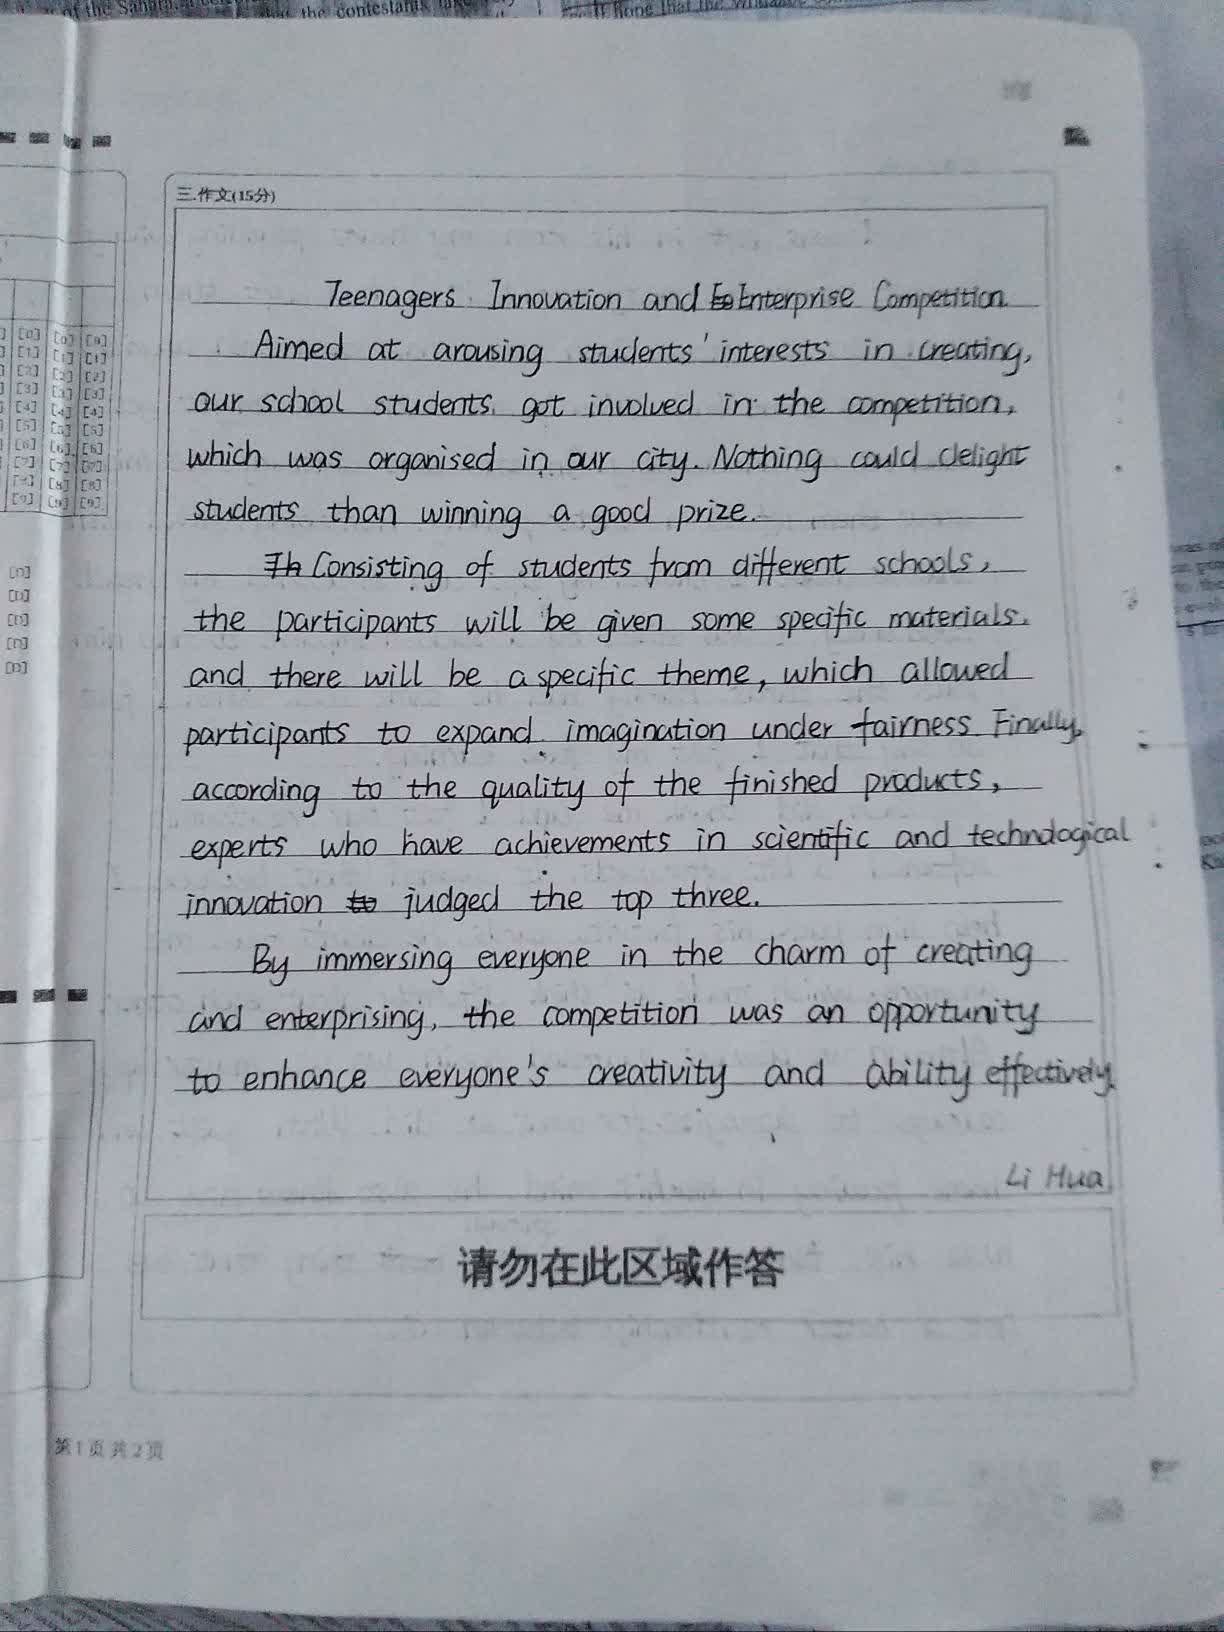 of the Sahara
the contestants
hope that the
三.作文(15分)
Teenagers Innovation and Enterprise Competition
Aimed at arousing students' interests in creating,
our school students got involved in the competition,
which was organised in our city. Nothing could delight
students than winning a good prize.
Consisting of students from different schools,
the participants will be given some specific materials.
and there will be a specific theme, which allowed
participants to expand imagination under fairness. Finally,
according to the quality of the finished products,
experts who have achievements in scientific and technological
innovation judged the top three.
By immersing everyone in the charm of creating
and enterprising, the competition was an opportunity
to enhance everyone's creativity and ability effectively.
Li Hua
请勿在此区域作答
第1页 共2页
[0] [0] [0]
[1] [1] [1]
[2] [2] [2]
[3] [3] [3]
[4] [4] [4]
[5] [5] [5]
[6] [6] [6]
[7] [7] [7]
[8] [8] [8]
[9] [9] [9]